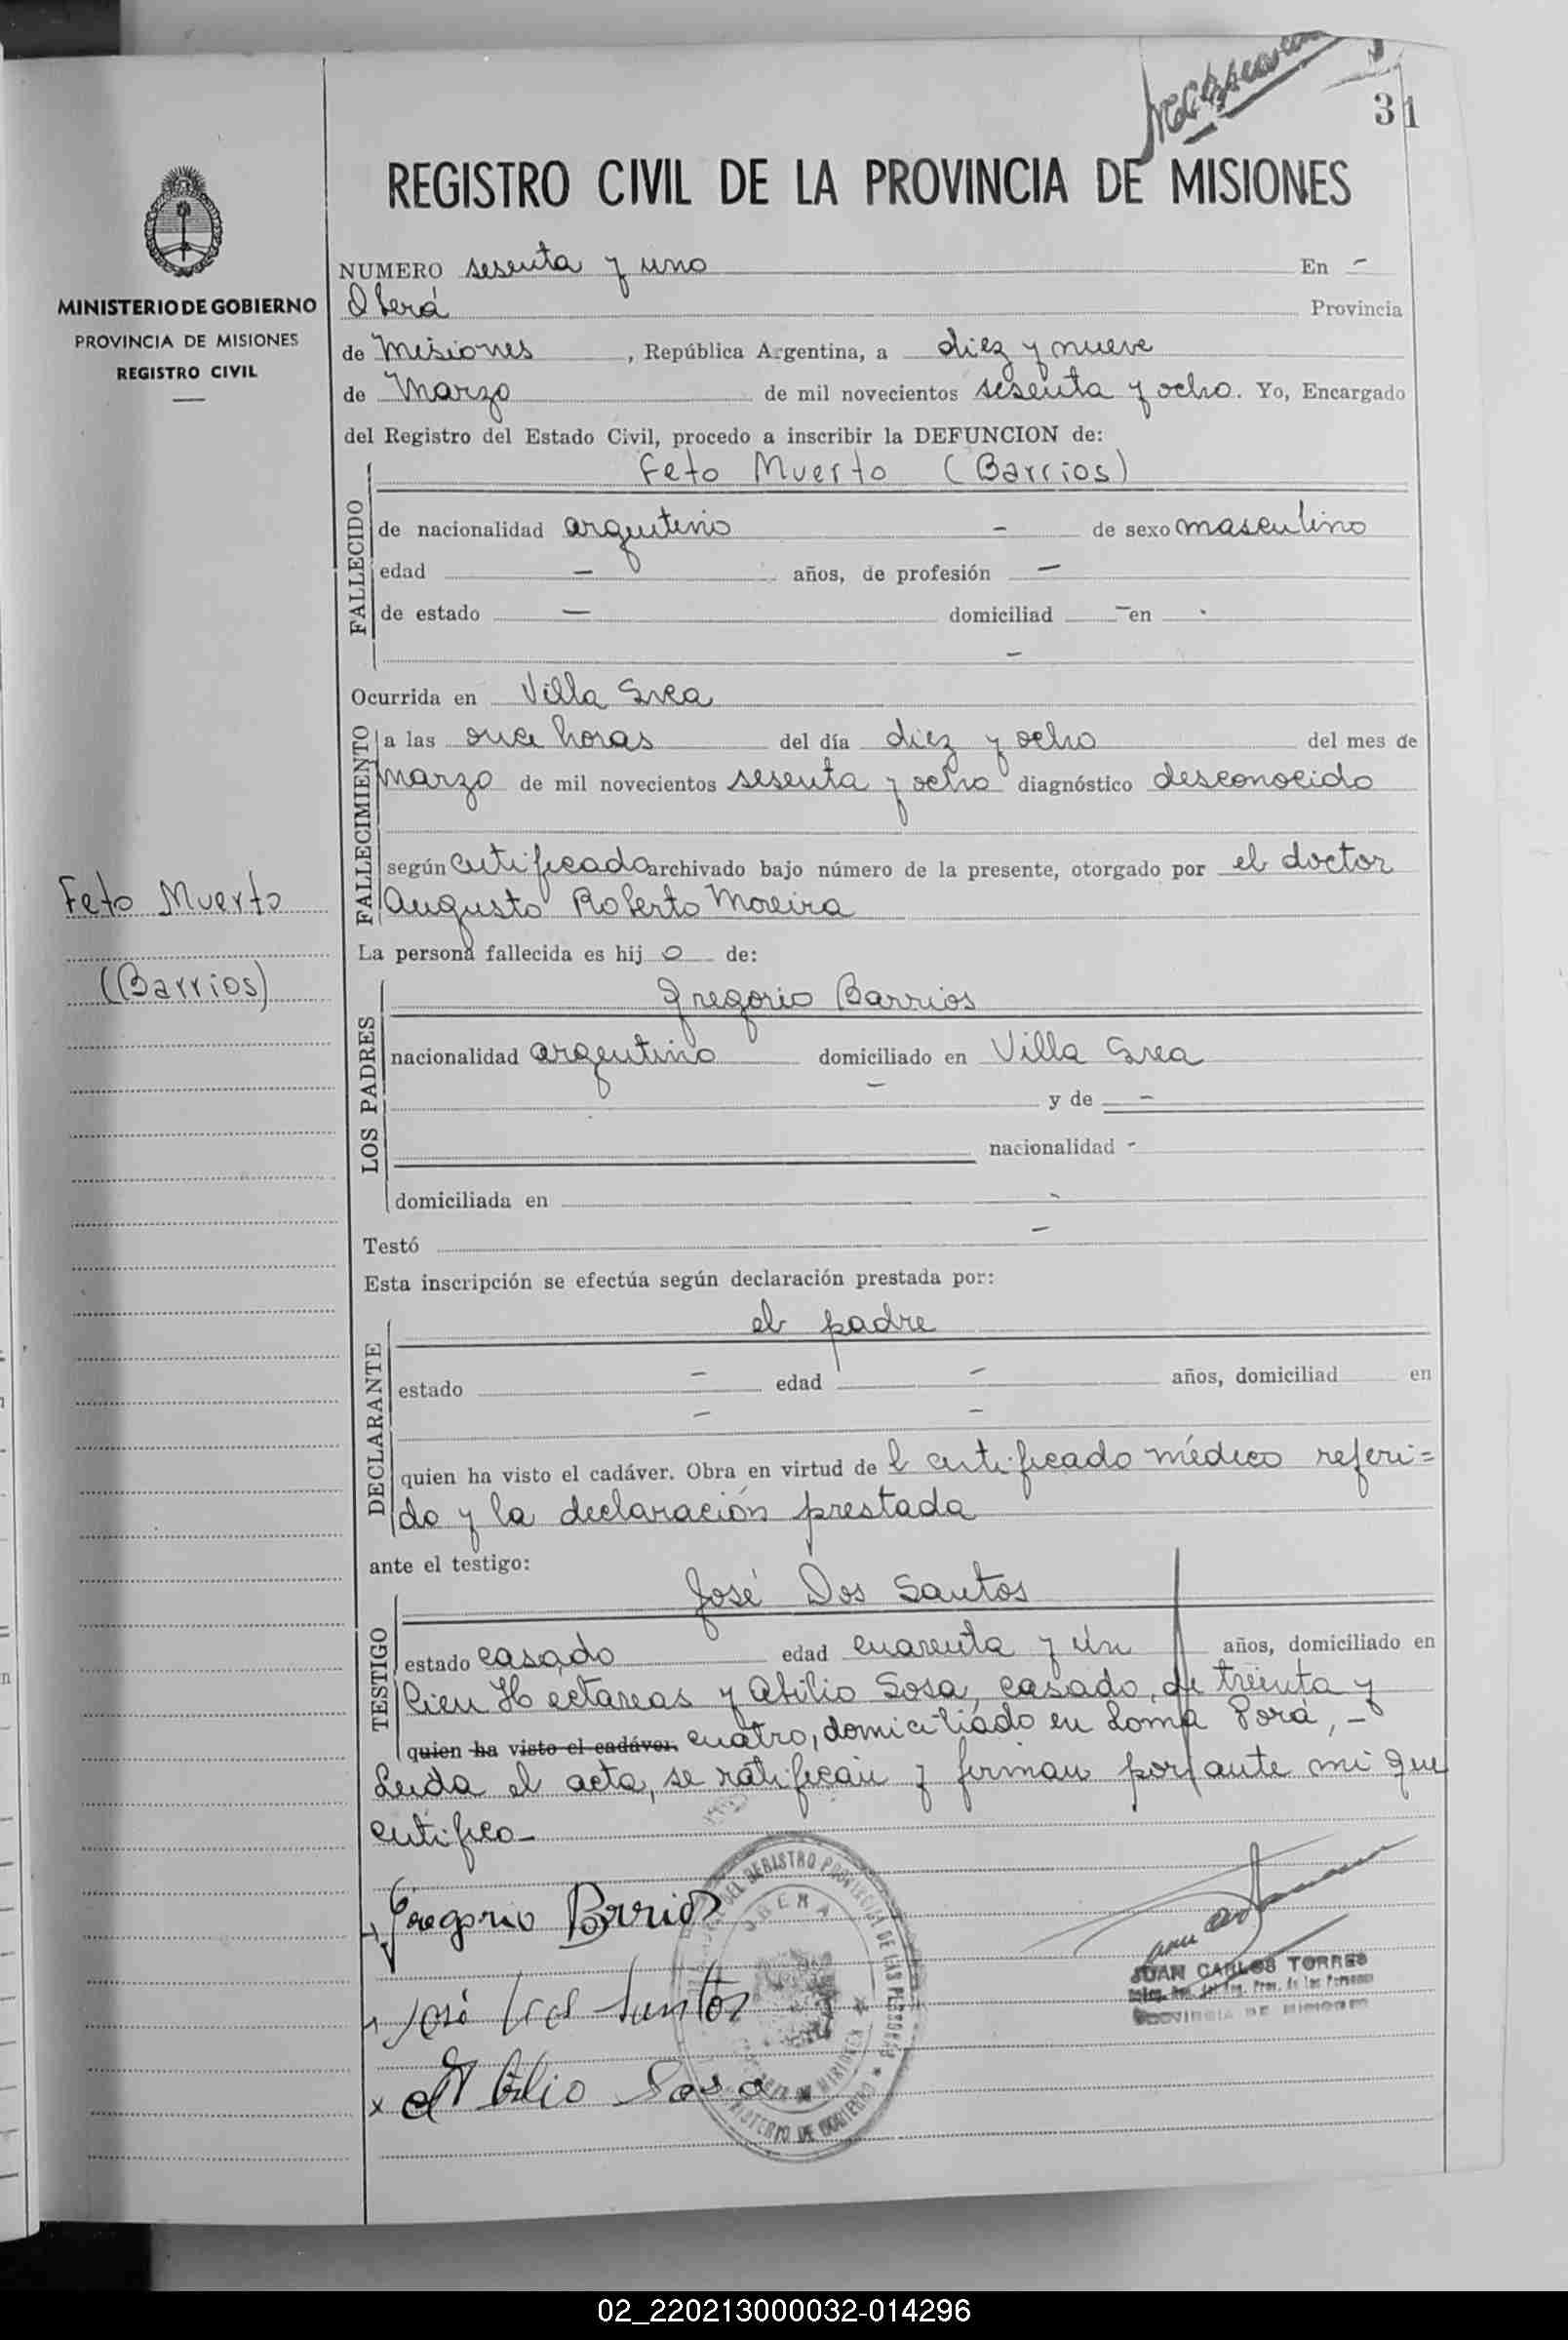 31
REGISTRO CIVIL DE LA PROVINCIA DE MISIONES
MINISTERIO DE GOBIERNO
PROVINCIA DE MISIONES
REGISTRO CIVIL
NUMERO sesenta y uno En -
Oberá Provincia
de Misiones, República Argentina, a diez y nueve
de Marzo de mil novecientos sesenta y ocho. Yo, Encargado
del Registro del Estado Civil, procedo a inscribir la DEFUNCION de:
FALLECIDO
Feto Muerto (Barrios)
de nacionalidad argentino - de sexo masculino
edad - años, de profesión -
de estado - domiciliad - en -
-
Ocurrida en Villa Svea
FALLECIMIENTO
a las once horas del día diez y ocho del mes de
marzo de mil novecientos sesenta y ocho diagnóstico desconocido
según certificado archivado bajo número de la presente, otorgado por el doctor
Augusto Roberto Moreira
Feto Muerto
(Barrios)
La persona fallecida es hij o de:
LOS PADRES
Gregorio Barrios
nacionalidad argentino domiciliado en Villa Svea
- y de -
nacionalidad -
domiciliada en -
Testó -
Esta inscripción se efectúa según declaración prestada por:
DECLARANTE
el padre
estado - edad - años, domiciliad en
- -
quien ha visto el cadáver. Obra en virtud de l certificado médico referi=
do y la declaración prestada
ante el testigo:
TESTIGO
José Dos Santos
estado casado edad cuarenta y ún años, domiciliado en
Cien Hectareas y Abilio Sosa, casado, de treinta y
quien ha visto el cadáver. cuatro, domiciliado en Loma Porá, -
Leida el acta, se ratifican y firman por ante mi que
certifico-
Gregorio Barrios
José Dos Santos
x Abilio Sosa
OBERA
MINISTERIO DE GOBIERNO
JUAN CARLOS TORRES
PROVINCIA DE MISIONES
02_220213000032-014296